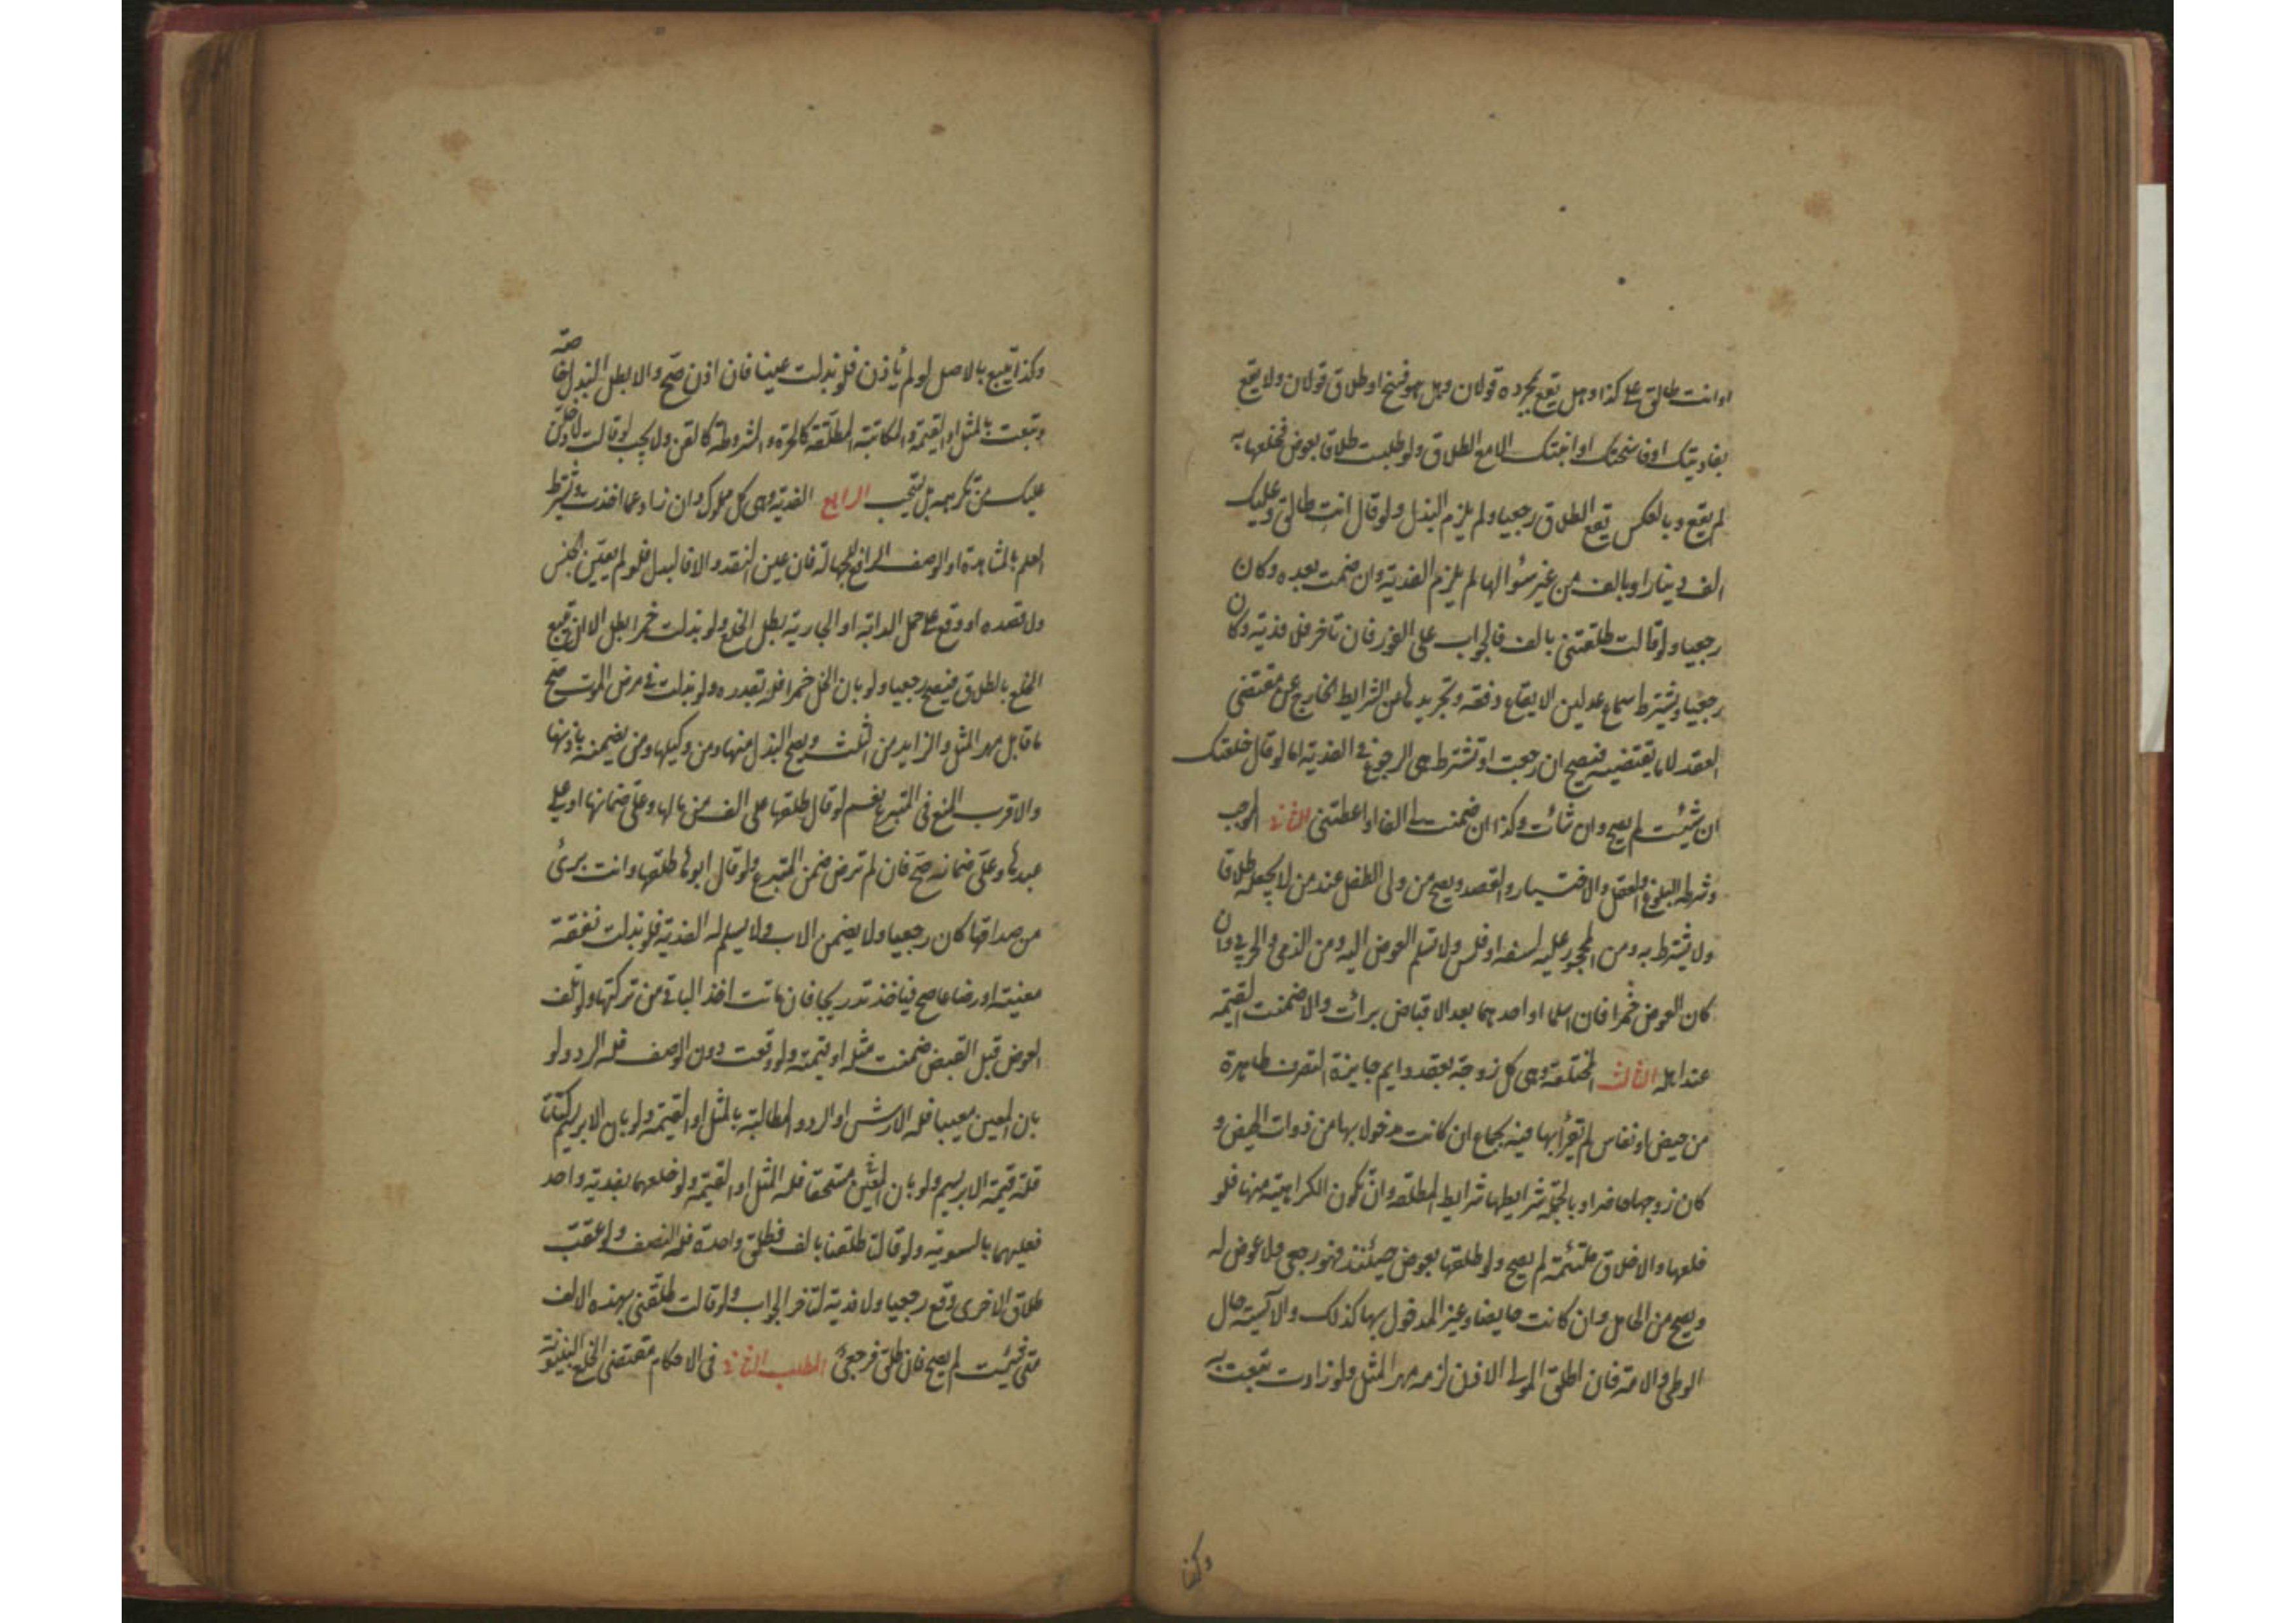 او انت طالق على كذا وهل يقع بمجرده قولان وهل هو فسخ او طلاق قولان ولا يقع
بفاديتك او فاسختك او ابنتك الا مع الطلاق ولو طلبت طلاقا بعوض فخلعها به
لم يقع وبالعكس يقع الطلاق رجعيا ولم يلزم البذل ولو قال انت طالق وعليك
الف دينار او بالف من غير سؤالها لم يلزم الفدية وان ضمنت بعده وكان
رجعيا ولو قالت طلقتني بالف فالجواب على الفور فان تأخر فلا فدية وكان
رجعيا ويشترط سماع عدلين الايقاع دفعة وتجريدها من الشرايط الخارج عن مقتضى
العقد لا ما يقتضيه فيصح ان رجعت او تشترط هي الرجوع في الفدية اما لو قال خلعتك
ان شئت لم يصح وان شاءت وكذا ان ضمنت لي الفا او اعطيتني الثاني الموجب
وشرطه البلوغ والعقل والاختيار والقصد ويصح من ولي الطفل عند من لا يجعله طلاقا
ولا يشترط به ومن المحجور عليه لسفه او فلس ولا تسلم العوض اليه ومن الذمي والحربي وان
كان العوض خمرا فان اسلما او احدهما بعد الاقباض برأت والا ضمنت القيمة
عند اهله الثالث المختلعة وهي كل زوجة بعقد دايم جايزة التصرف طاهرة
من حيض او نفاس لم يقربها فيه بجماع ان كانت مدخول بها من ذوات الحيض و
كان زوجها حاضرا وبالجملة شرايطها شرايط المطلقة وان تكون الكراهية منها فلو
خلعها والاخلاق ملتئمة لم يصح ولو طلقها بعوض حينئذ فهو رجعي ولا عوض له
ويصح من الحامل وان كانت حايضا وغير المدخول بها كذلك والآيسة حال
الوطي والامة فان اطلق المولى الاذن لزمه مهر المثل ولو زادت تبعت به
وكذا
وكذا يتبع بالاصل لو لم يأذن فلو بذلت عينا فان اذن صح والا بطل البذل خاصة
وتبعت بالمثل او القيمة والمكاتبة المطلقة كالحرة والمشروطة كالقن ولا يجب لو قالت لادخلن
عليك من تكرهه بل يستحب الرابع الفدية وهي كل مملوك وان زاد عما اخذت ويشترط
العلم بالمشاهدة او الوصف الرافع للجهالة فان عين النقد والا فالبلد فلو لم يعين الجنس
ولا قصده او وقع على حمل الدابة او الجارية بطل الخلع ولو بذلت خمرا بطل الا ان يتبع
الخلع بالطلاق فيقع رجعيا ولو بان الخل خمرا فله بقدره ولو بذلت في مرض الموت صح
ما قابل مهر المثل والزايد من الثلث ويصح البذل منها ومن وكيلها ومن يضمنه باذنها
والاقرب المنع في المتبرع نعم لو قال طلقها على الف من مالها وعلي ضمانها او على
عبدها وعلي ضمانه صح فان لم ترض ضمن المتبرع ولو قال ابوها طلقها وانت بريء
من صداقها كان رجعيا ولا يضمن الاب ولا يسلم له الفدية فلو بذلت نفقة
معينة او رضاعا صح فيأخذ تدريجا فان ماتت اخذ الباقي من تركتها ولو تلف
العوض قبل القبض ضمنت مثله او قيمته ولو وقعت دون الوصف فله الرد ولو
بان العين معيبا فله الارش او الرد والمطالبة بالمثل او القيمة ولو بان الابريسم كتانا
فله قيمة الابريسم ولو بان العين مستحقا فله المثل او القيمة ولو خلعهما بفدية واحد
فعليهما بالسوية ولو قالتا طلقنا بالف فطلق واحدة فله النصف ولو عقب
طلاق الاخرى وقع رجعيا ولا فدية لتأخر الجواب ولو قالت طلقني بهذه الالف
متى شئت لم يصح فان طلق فرجعي المطلب الثاني في الاحكام مقتضى الخلع البينونة